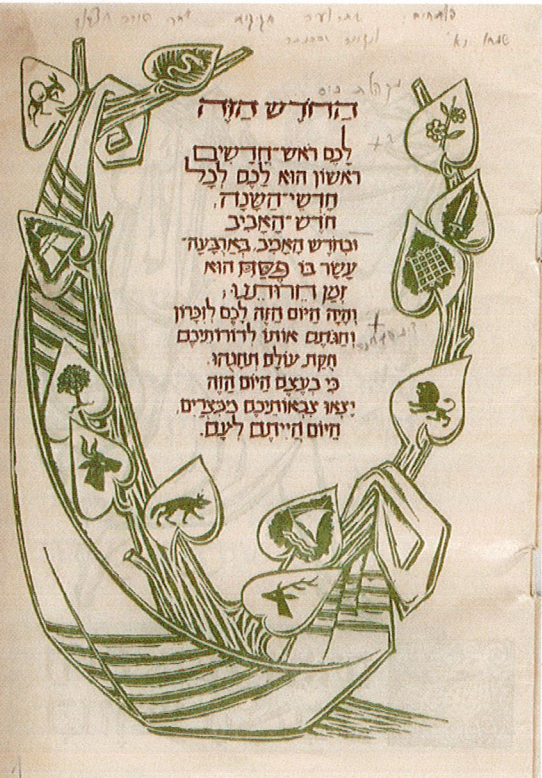 הַחֹדֶשׁ הַזֶּה
לָכֶם רֹאשׁ־חֳדָשִׁים
רִאשׁוֹן הוּא לָכֶם לְכָל
חָדְשֵׁי־הַשָּׁנָה,
חֹדֶשׁ־הָאָבִיב
וּבְחֹדֶשׁ הָאָבִיב, בְּאַרְבָּעָה־
עָשָׂר בּוֹ פֶּסַח הוּא
זְמַן חֵרוּתֵנוּ;
וְהָיָה הַיּוֹם הַזֶּה לָכֶם לְזִכָּרוֹן
וְחַגֹּתֶם אוֹתוֹ לְדוֹרוֹתֵיכֶם
חֻקַּת עוֹלָם תְּחָגֻּהוּ
כִּי בְּעֶצֶם הַיּוֹם הַזֶּה
יָצְאוּ צִבְאוֹתֵיכֶם מִמִּצְרַיִם,
הַיּוֹם הֱיִיתֶם לְעָם.